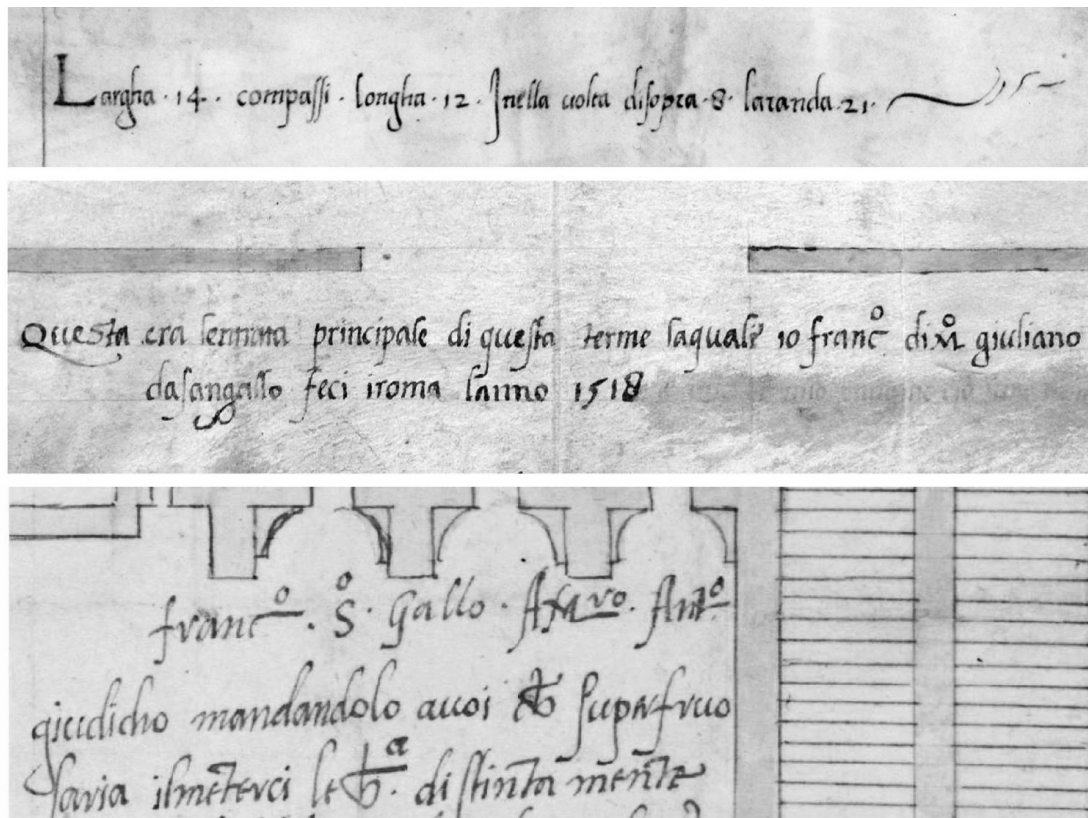 Largha · 14 · compassi · longha · 12 · Inella uolta disopra · 8 · laranda · 21 ·
Questa era lentrata principale di questa terme laquale io franc° di m° giuliano
dasangallo feci iroma lanno 1518
franc° · S° · Gallo · Ant°
giudicho mandandolo auoi superfruo
saria ilmeterci le distinta mente